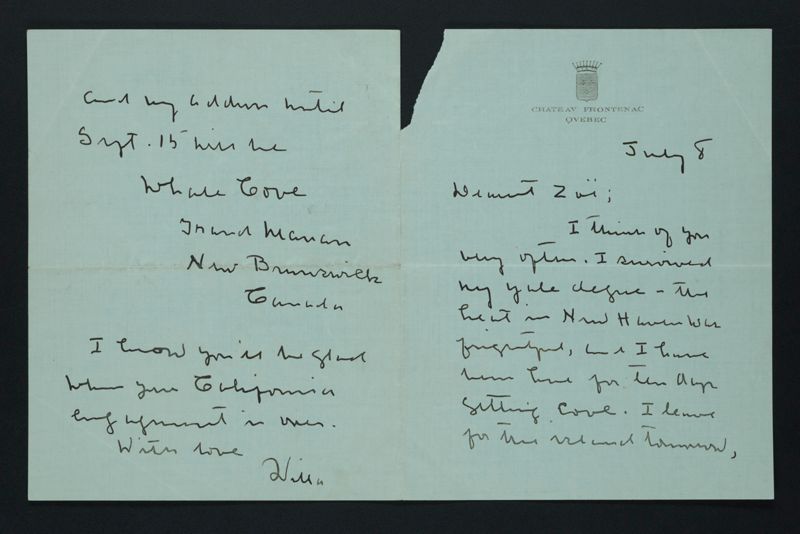 CHATEAV FRONTENAC
QVEBEC
July 8
Dearest Zoë;
I think of you
very often. I survived
my Yale degree - the
heat in New Haven was
frightful, and I have
been here for ten days
getting cool. I leave
for the island tomorrow,
and my address until
Sept. 15 will be
Whale Cove
Grand Manan
New Brunswick
Canada
I know you'll be glad
when your California
engagement is over.
With love
Willa